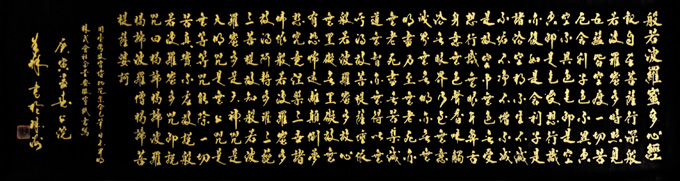 般若波羅蜜多心經
觀自在菩薩行深般
若波羅蜜多時照見
五蘊皆空度一切苦
厄舍利子色不異空
空不異色色即是空
空即是色受想行識
亦復如是舍利子是
諸法空相不生不滅
不垢不淨不增不減
是故空中無色無受
想行識無眼耳鼻舌
身意無色聲香味觸
法無眼界乃至無意
識界無無明亦無無
明盡乃至無老死亦
無老死盡無苦集滅
道無智亦無得以無
所得故菩提薩埵依
般若波羅蜜多故心
無罣礙無罣礙故無
有恐怖遠離顛倒夢
想究竟涅槃三世諸
佛依般若波羅蜜多
故得阿耨多羅三藐
三菩提故知般若波
羅蜜多是大神咒是
大明咒是無上咒是
無等等咒能除一切
苦真實不虛故說般
若波羅蜜多咒即說
咒曰揭諦揭諦波羅
揭諦波羅僧揭諦菩
提薩婆訶
庚寅